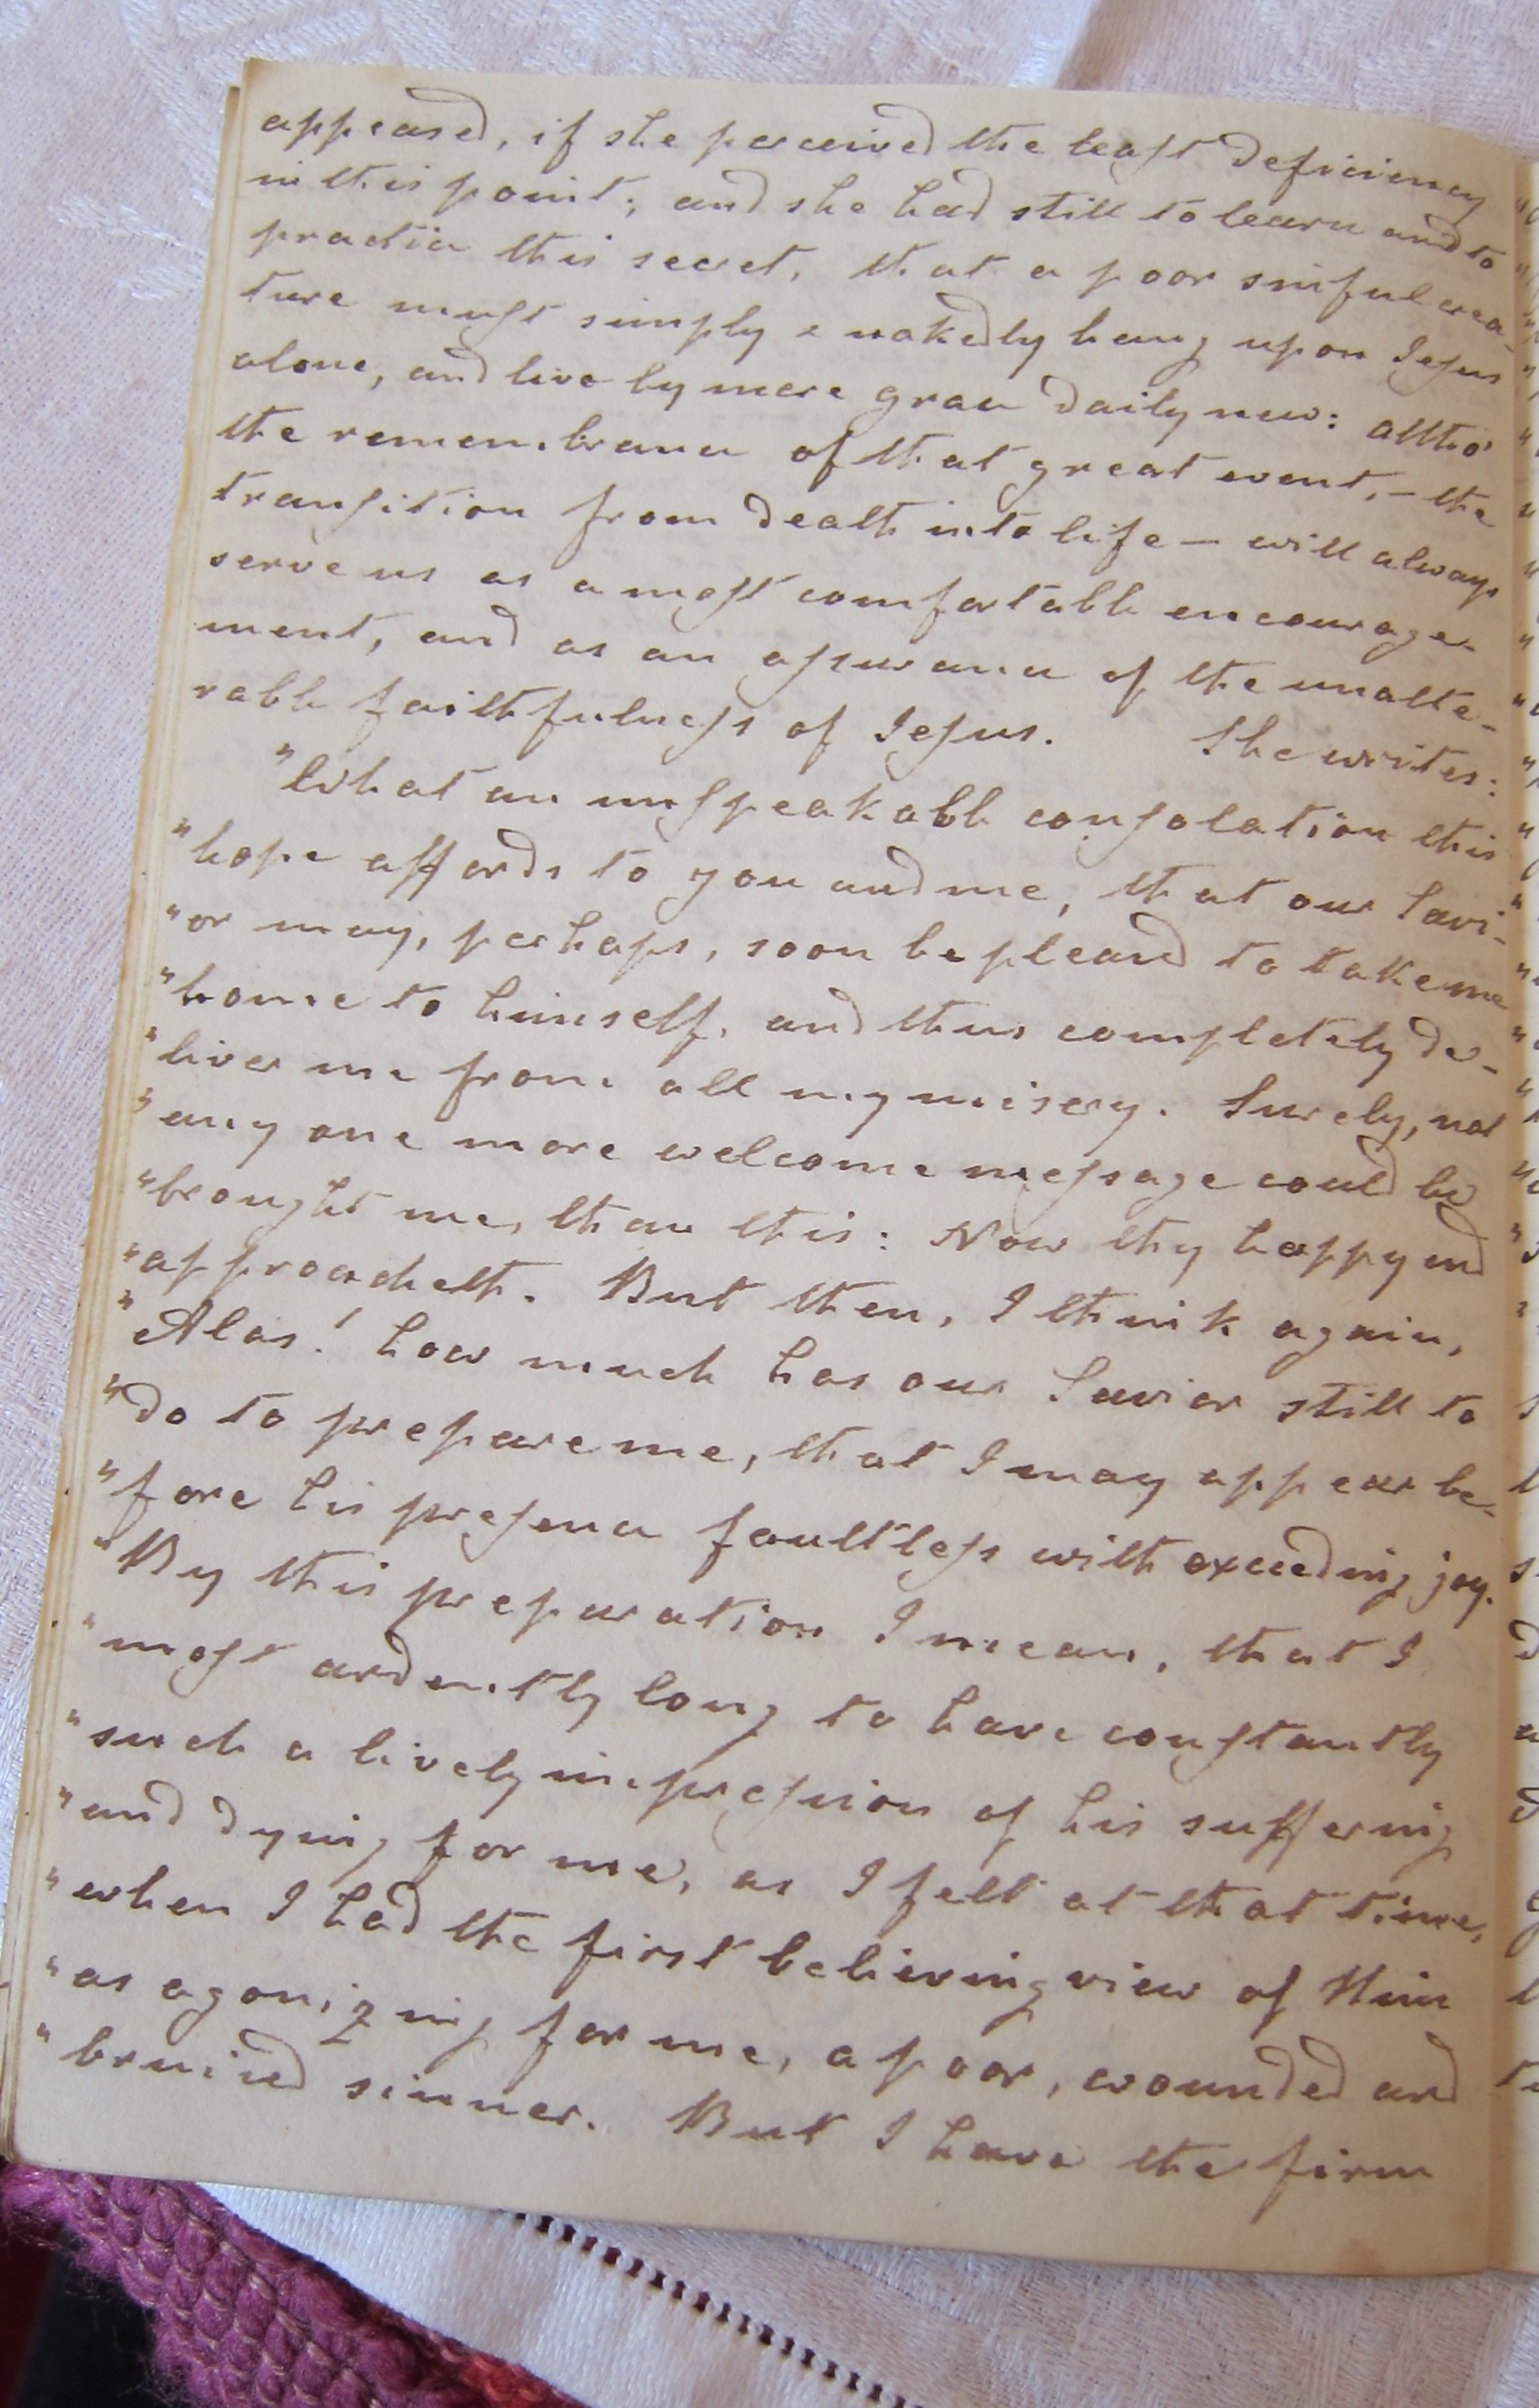 appeased, if she perceived the least deficiency
in this point; and she had still to learn and to
practice this secret, that a poor sinful crea-
ture must simply & nakedly hang upon Jesus
alone, and live by mere grace daily new: altho'
the remembrance of that great event, – the
transition from death into life – will always
serve us as a most comfortable encourage-
ment, and as an assurance of the unalte-
rable faithfulness of Jesus. She writes:
"What an unspeakable consolation this
"hope affords to you and me, that our Savi-
"or may, perhaps, soon be pleased to take me
"home to himself, and thus completely de-
"liver me from all my misery. Surely, not
"any one more welcome message could be
"brought me, than this: Now thy happy end
"approacheth. But then, I think again,
"Alas! how much has our Savior still to
"do to prepare me, that I may appear be-
"fore his presence faultless with exceeding joy.
"By this preparation I mean, that I
"most ardently long to have constantly
"such a lively impression of his suffering
"and dying for me, as I felt at that time,
"when I had the first believing view of Him
"as agonizing for me, a poor, wounded and
"bruised sinner. But I have the firm